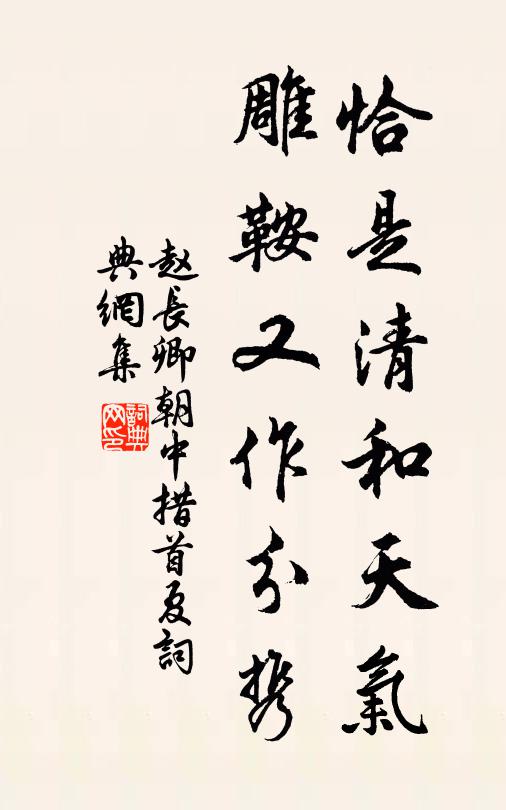 恰是清和天氣
雕鞍又作分携
赵長卿朝中措首夏詞
典網集
詞典网印